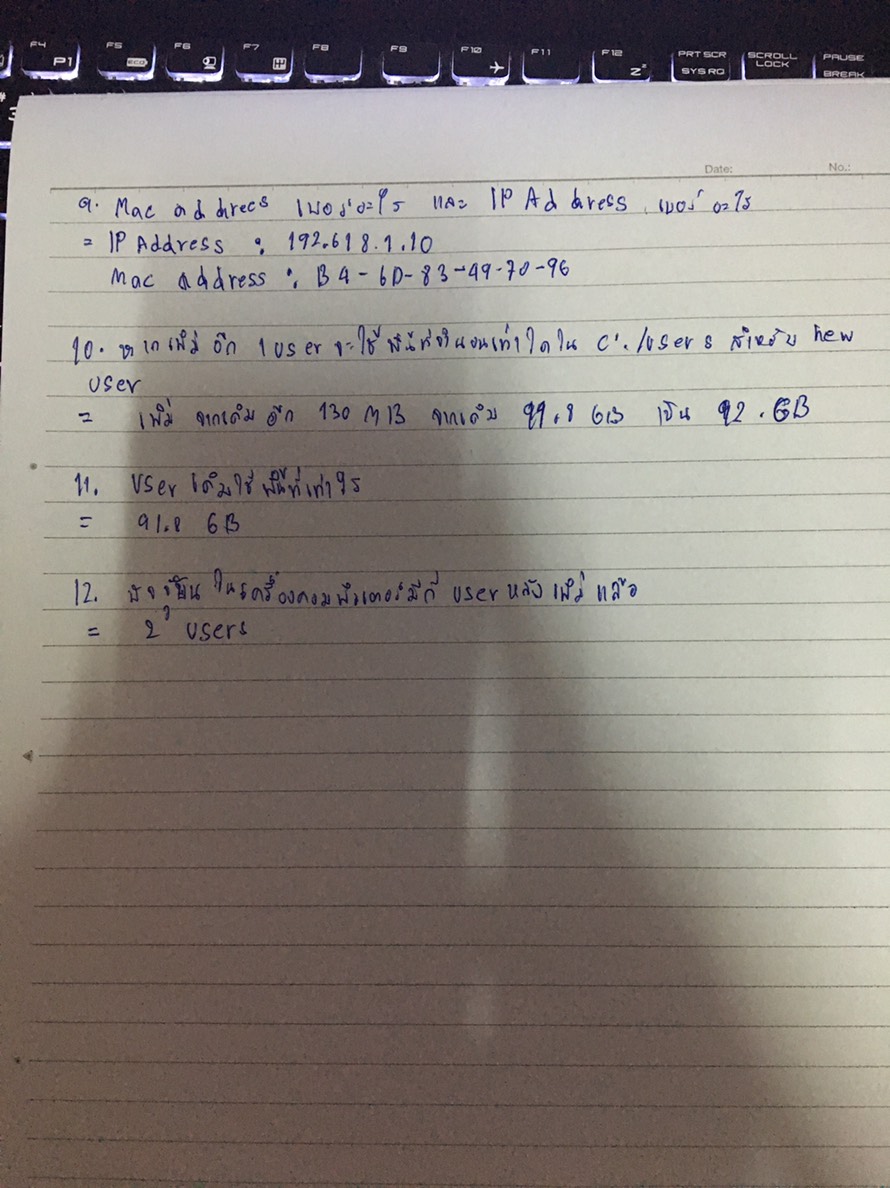 F4 P1 F5 ECO F6 F7 F8 F9 F10 F11 F12 Zz PRT SCR SYS RQ SCROLL LOCK PAUSE BREAK
3
Date: No.:
9. Mac addrecs เบอร์อะไร และ IP Address เบอร์อะไร
= IP Address : 192.618.1.10
Mac address : B4-6D-83-49-70-96
10. หากเพิ่ม อีก 1 user จะใช้ พื้นที่จำนวนเท่าใดใน C:/users สำหรับ new
user
= เพิ่ม จากเดิม อีก 130 MB จากเดิม 91.8 GB เป็น 92. GB
11. User เดิมใช้ พื้นที่เท่าไร
= 91.8 GB
12. ปัจจุบัน ในเครื่องคอมพิวเตอร์มีกี่ user หลัง เพิ่ม แล้ว
= 2 users